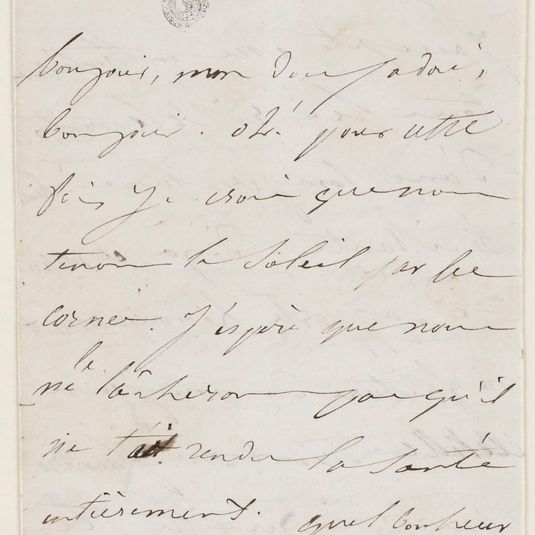 bonjour, mon doux adoré,
bonjour. oh! pour cette
fois je crois que nous
tenons le soleil par les
cornes. J'espère que nous
ne le lâcherons pas qu'il
ne t'ait rendu la santé
entièrement. quel bonheur